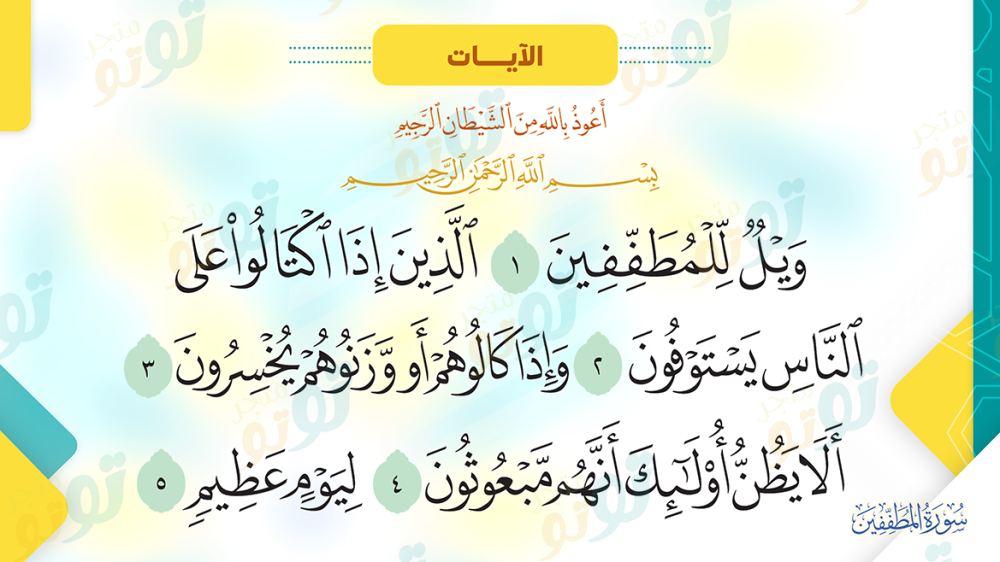 الآيـــات
أَعُوذُ بِاللَّهِ مِنَ ٱلشَّيْطَانِ ٱلرَّجِيمِ
بِسْمِ ٱللَّهِ ٱلرَّحْمَٰنِ ٱلرَّحِيمِ
وَيْلٌ لِّلْمُطَفِّفِينَ ١ ٱلَّذِينَ إِذَا ٱكْتَالُوا۟ عَلَى
ٱلنَّاسِ يَسْتَوْفُونَ ٢ وَإِذَا كَالُوهُمْ أَو وَّزَنُوهُمْ يُخْسِرُونَ ٣
أَلَا يَظُنُّ أُو۟لَٰٓئِكَ أَنَّهُم مَّبْعُوثُونَ ٤ لِيَوْمٍ عَظِيمٍ ٥
سُورَةُ المُطَفِّفِينَ
متجر
توتو